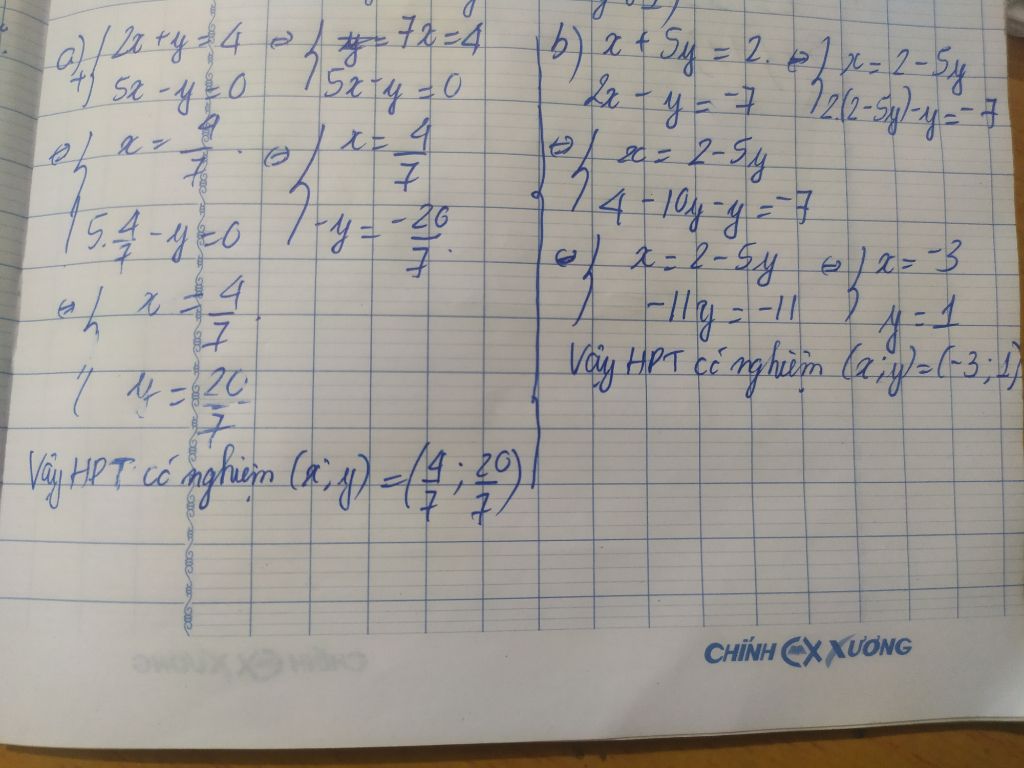 a) { 2x + y = 4 ⇔ { 7x = 4
5x - y = 0 5x - y = 0
⇔ { x = 4/7 ⇔ { x = 4/7
5. 4/7 - y = 0 -y = -20/7.
⇔ { x = 4/7
y = 20/7
Vậy HPT có nghiệm (x; y) = (4/7; 20/7)
b) x + 5y = 2. ⇔ { x = 2 - 5y
2x - y = -7 2(2-5y) - y = -7
⇔ { x = 2 - 5y
4 - 10y - y = -7
⇔ { x = 2 - 5y ⇔ { x = -3
-11y = -11 y = 1
Vậy HPT có nghiệm (x; y) = (-3; 1)
CHÍNH XƯƠNG